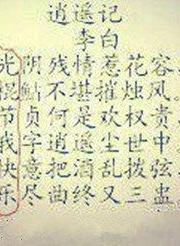 逍遥记
李白
光阴残情惹花容。
棍鲇不堪摧烛风。
节贞何是欢权贵,
我字逍遥尘世中。
快意把酒乱拨弦,
乐尽曲终又三盅